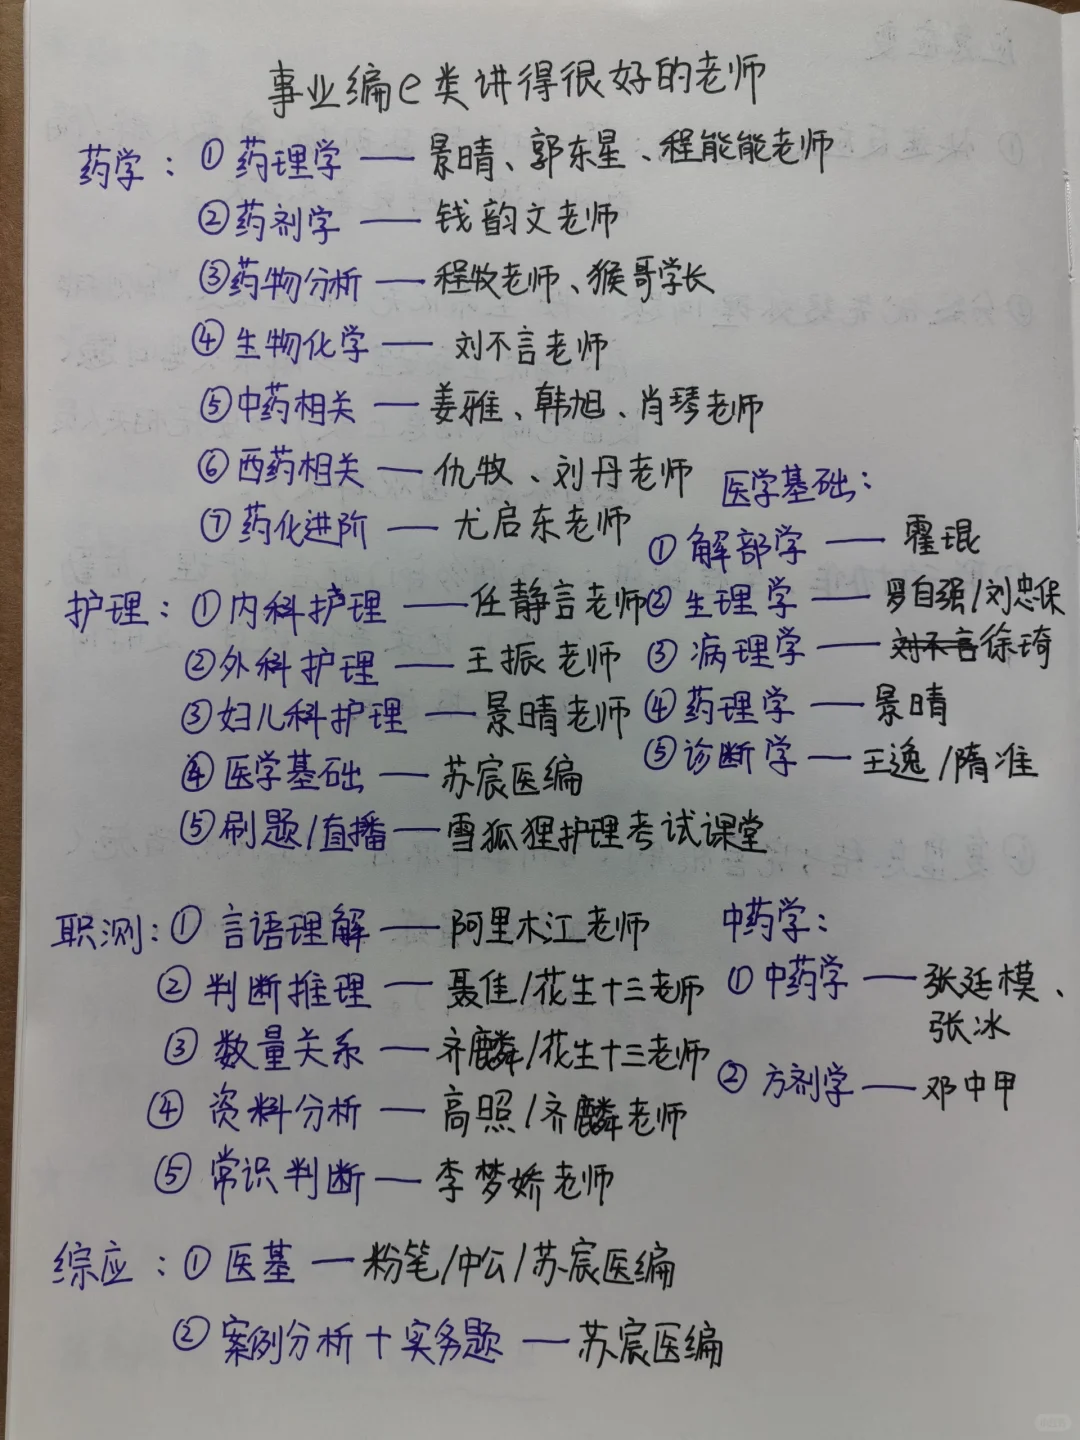 事业编e类讲得很好的老师
药学：①药理学——景晴、郭东星、程能能老师
②药剂学——钱韵文老师
③药物分析——程牧老师、猴哥学长
④生物化学——刘不言老师
⑤中药相关——姜雅、韩旭、肖琴老师
⑥西药相关——仇牧、刘丹老师
⑦药化进阶——尤启东老师
护理：①内科护理——任静言老师
②外科护理——王振老师
③妇儿科护理——景晴老师
④医学基础——苏宸医编
⑤刷题/直播——雪狐狸护理考试课堂
医学基础：
①解部学——霍琨
②生理学——罗自强/刘忠保
③病理学——刘不言徐琦
④药理学——景晴
⑤诊断学——王逸/隋准
职测：①言语理解——阿里木江老师
②判断推理——聂佳/花生十三老师
③数量关系——齐麟/花生十三老师
④资料分析——高照/齐麟老师
⑤常识判断——李梦娇老师
中药学：
①中药学——张廷模、
张冰
②方剂学——邓中甲
综应：①医基——粉笔/中公/苏宸医编
②案例分析+实务题——苏宸医编